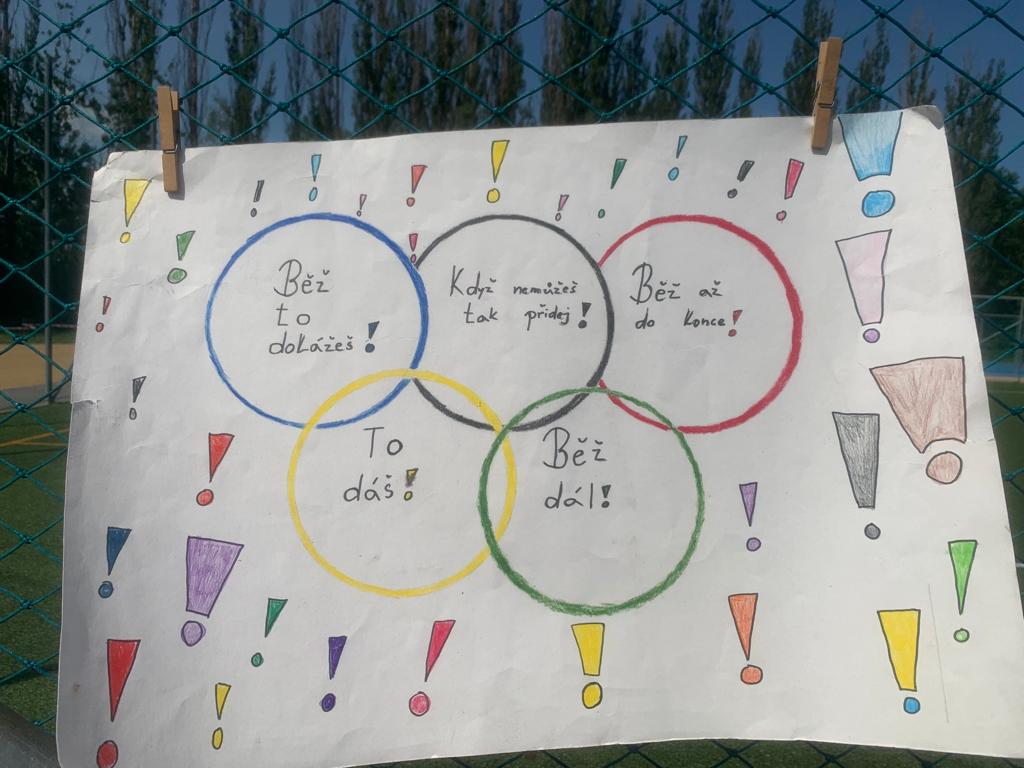 Běž
to
dokážeš!
Když nemůžeš
tak přidej!
Běž až
do konce!
To
dáš!
Běž
dál!